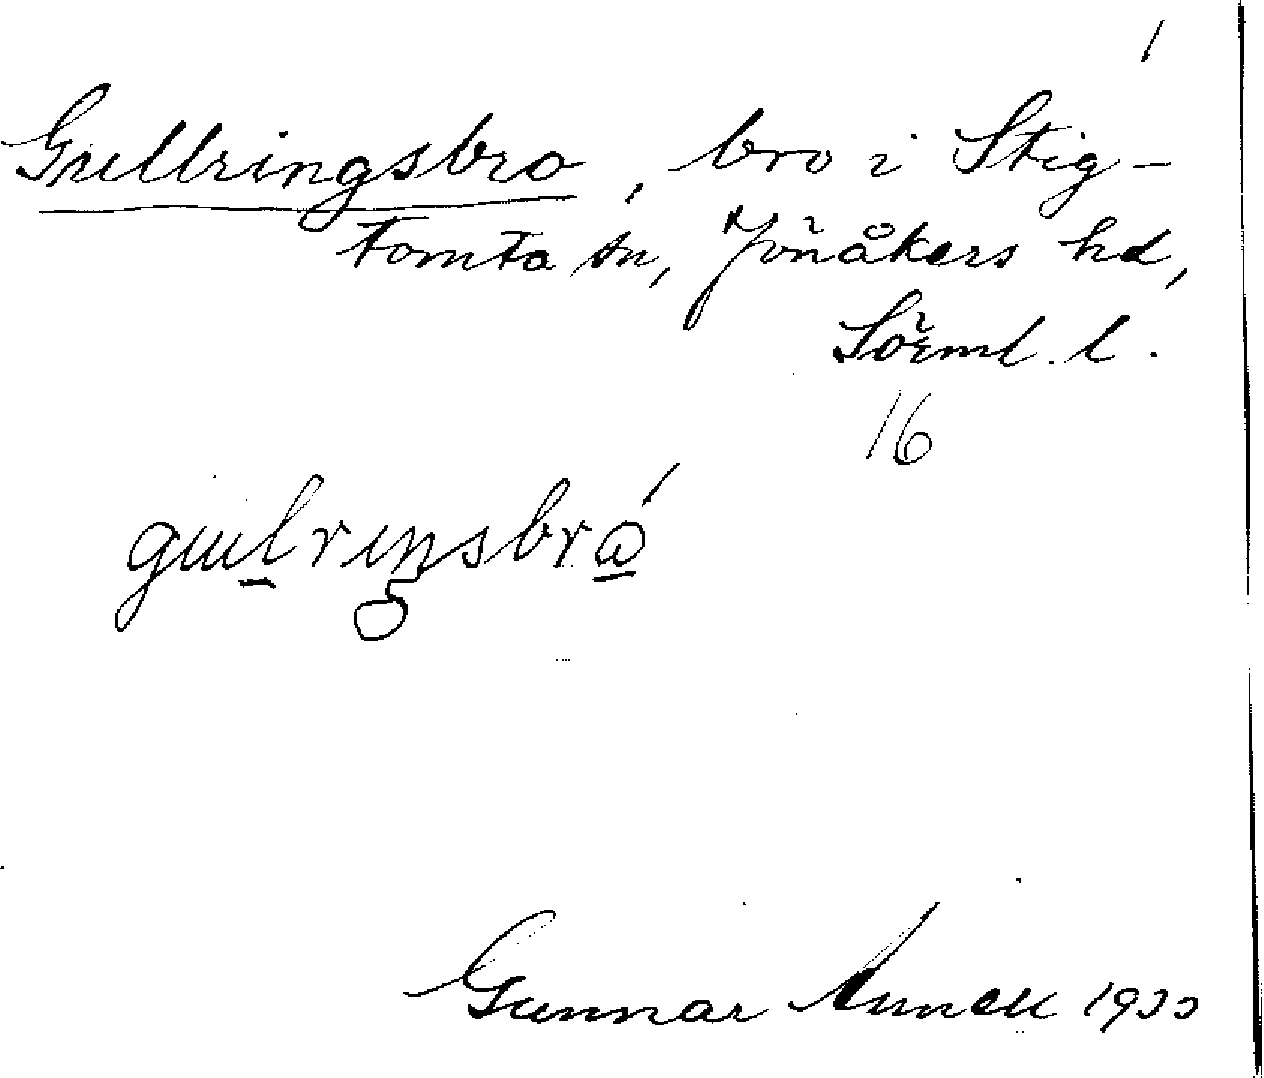 Gullringsbro, bro i Stig-
tomta sn, Jönåkers hd,
Sörml. l.
16
Gunnar Annell 1933